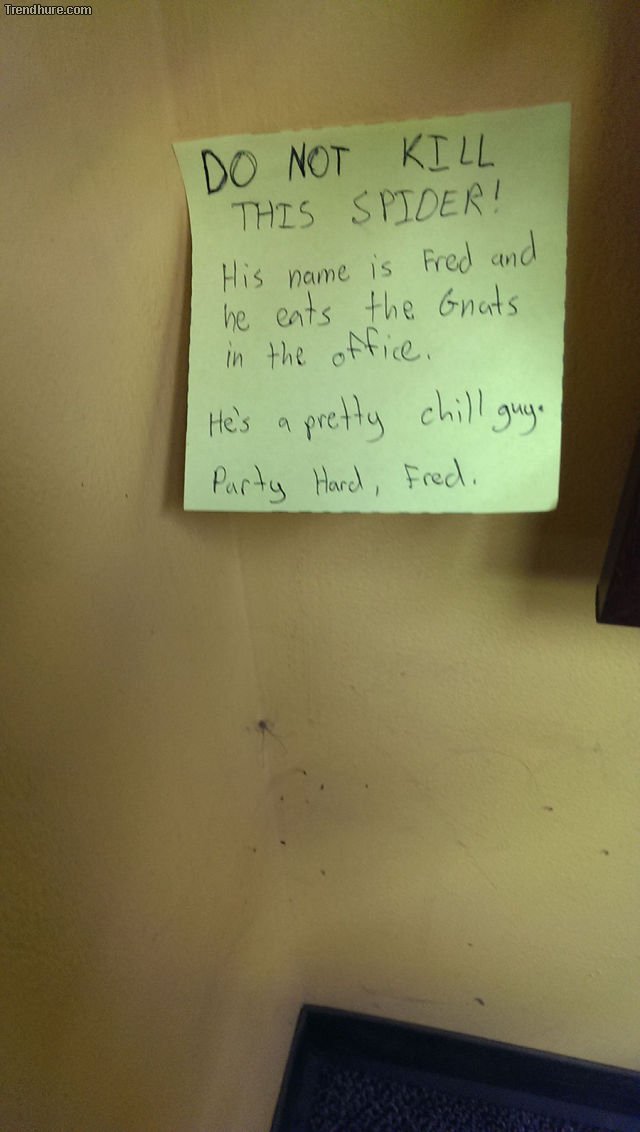 Trendhure.com
DO NOT KILL
THIS SPIDER!
His name is Fred and
he eats the Gnats
in the office.
He's a pretty chill guy.
Party Hard, Fred.